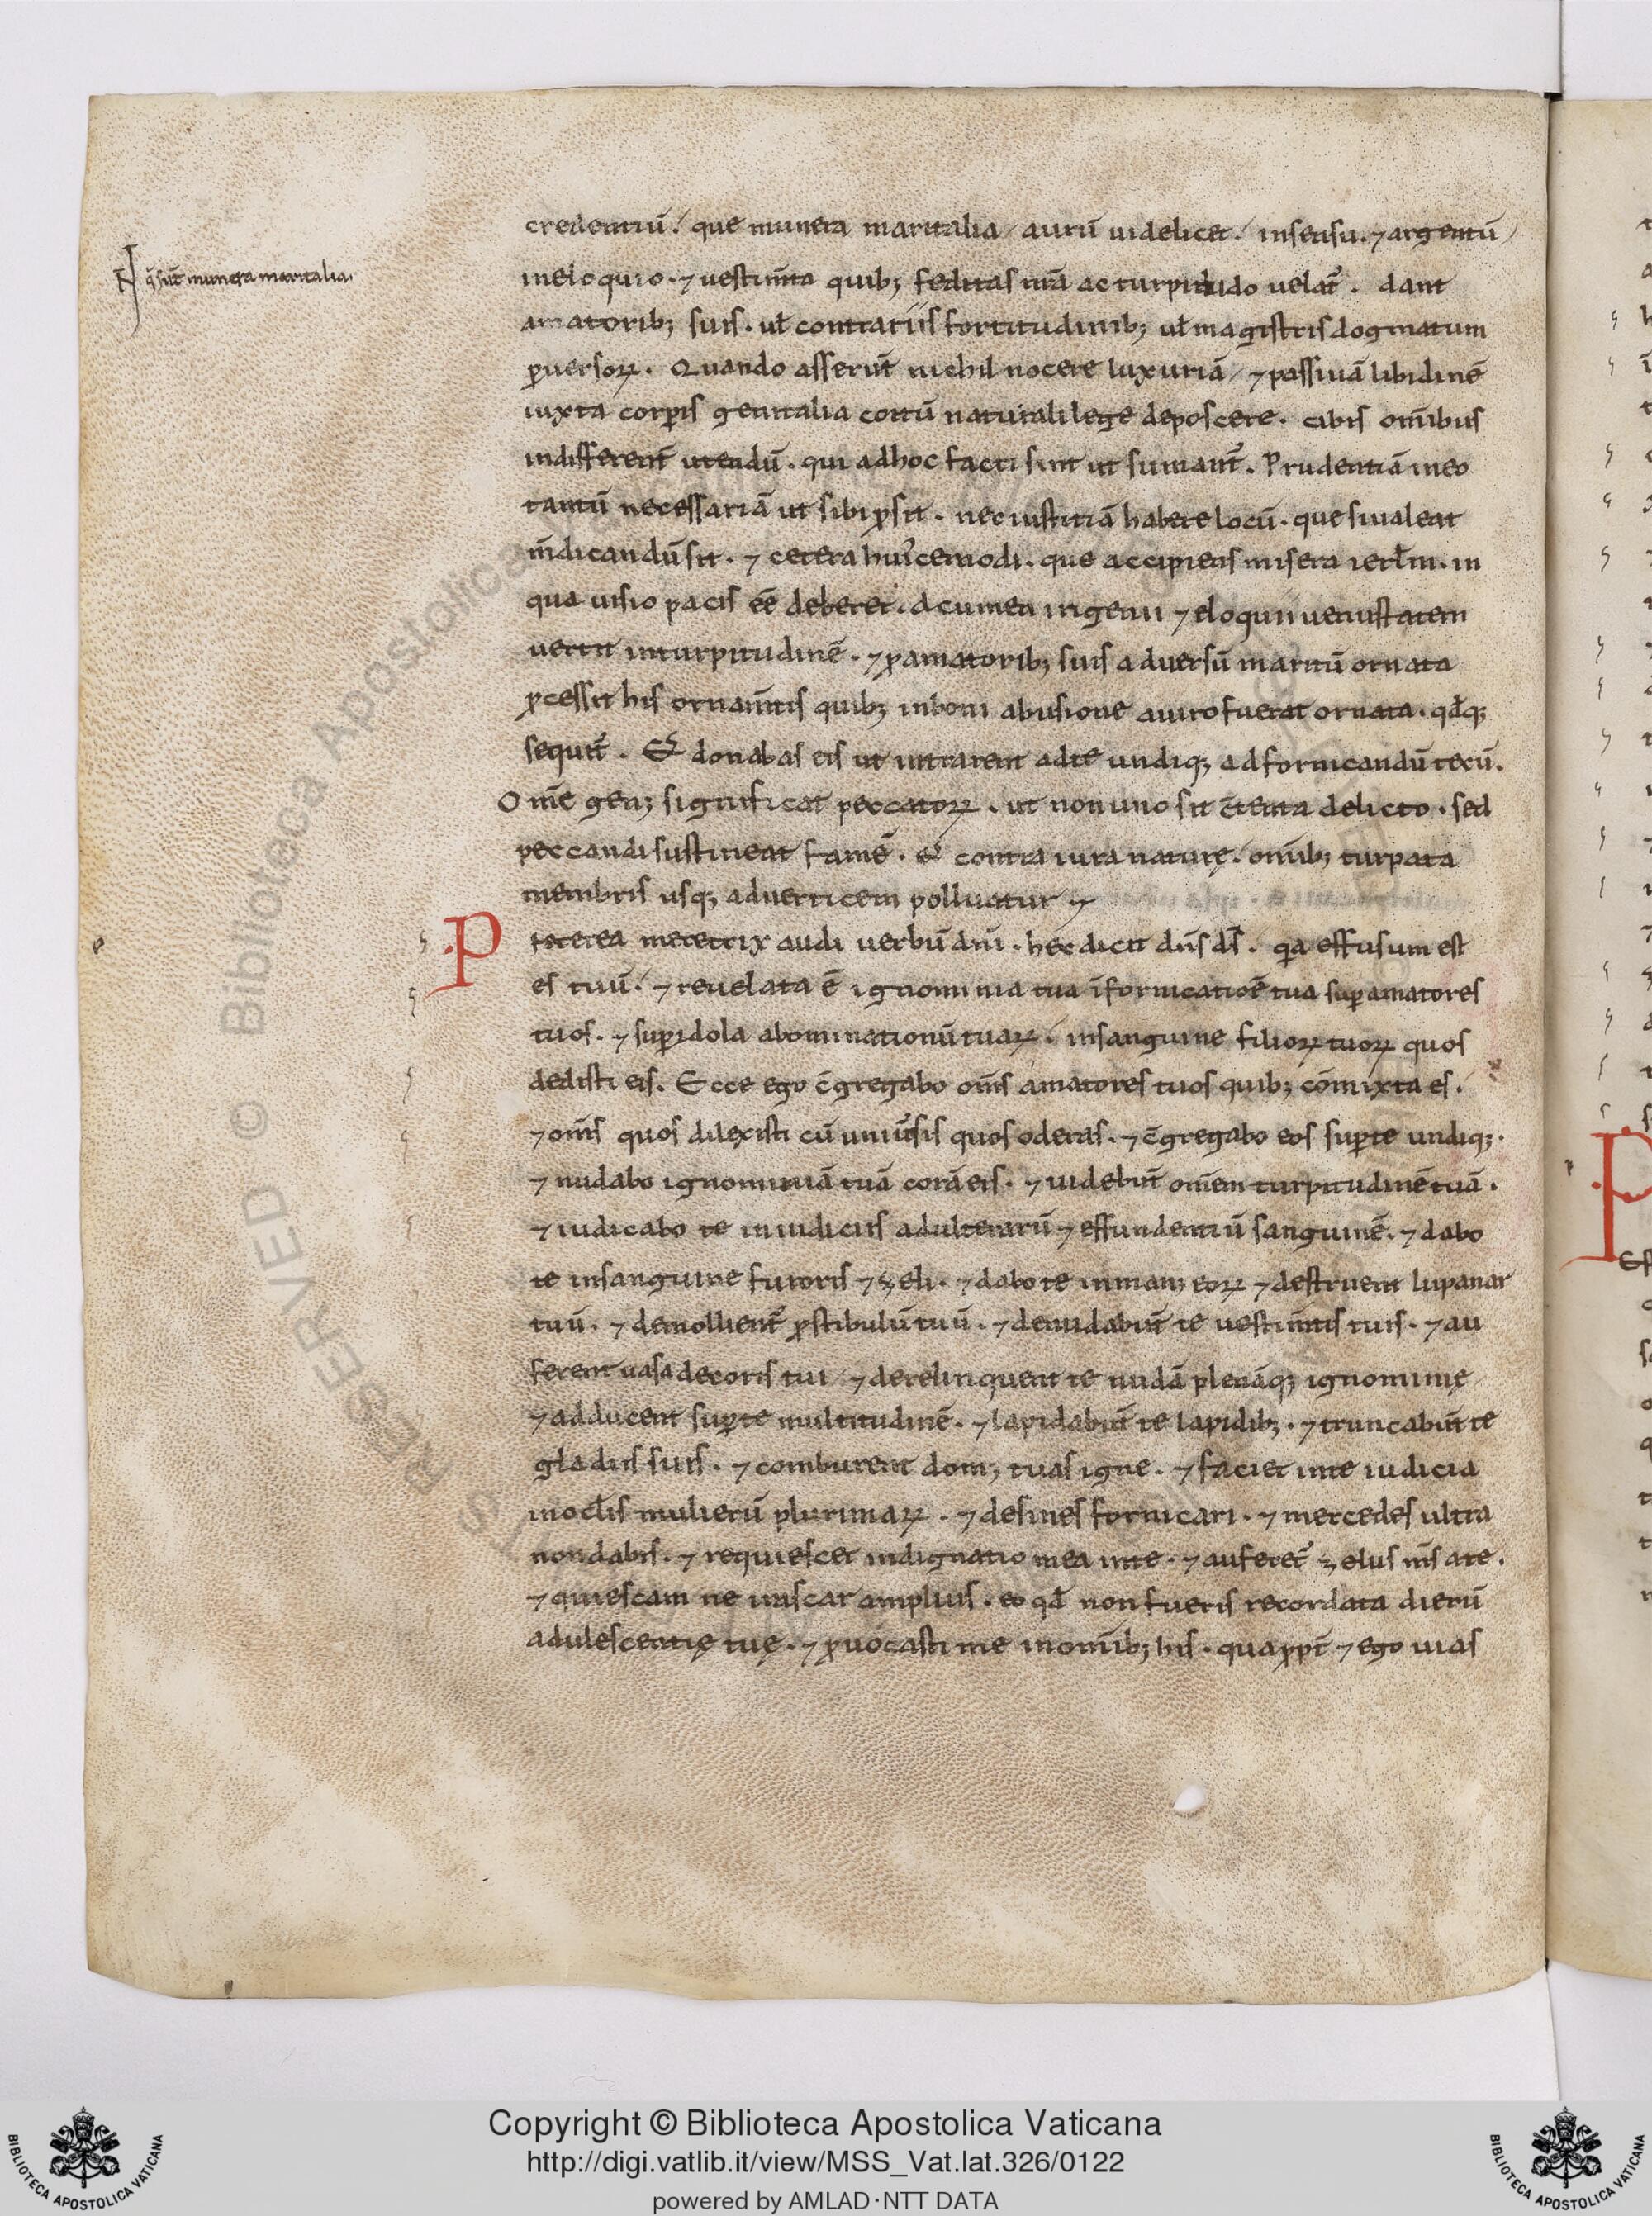 credentiū. que munera maritalia / aurū uidelicet / insensu. ⁊ argentū /
ineloquio. ⁊ uestim̄ta quib; feditas nr̄a ac turpitudo uelat᷑. dant
amatorib; suis. ul̄ contrariis fortitudinib; ul̄ magistris dogmatum
ꝑuersoꝝ. Quando asserūt nichil nocere luxuriā / ⁊ passiuā libidinē
iuxta corꝑis genitalia coitū naturali lege deposcere. cibis om̄ibus
indifferent̄ utendū. qui adhoc facti sunt ut sumant᷑. Prudentiā ineo
tantū necessariā ut sibi ꝓsit. nec iustitiā habere locū. que siualeat
m̄dicandū sit. ⁊ cetera hui᷒cemodi. que accipiens misera ierl̄m. in
qua uisio pacis eē deberet. acumen ingenii ⁊ eloquii uenustatem
uertit inturpitudinē. ⁊ ꝓ amatorib; suis aduersū maritū ornata
ꝓcessit his ornam̄tis quib; inboni abusione auiro fuerat ornata. qd̄q;
sequit᷑. Et donabas eis ut intrarent adte undiq; adfornicandū tecū.
Om̄e gen; significat peccatoꝝ. ut non uno sit c̄tenta delicto. sed
peccandi sustineat famē. et contra iura naturę. om̄ib; turpata
membris usq; aduerticem polluatur ⁊
Propterea meretrix audi uerbū dn̄i. hec dicit dn̄s ds̄. qa effusum est
es tuū. ⁊ reuelata ē ignominia tua ī fornicatiōe tua suꝑ amatores
tuos. ⁊ suꝑ idola abominationū tuaꝝ. insanguine filioꝝ tuoꝝ quos
dedisti eis. Ecce ego c̄gregabo om̄s amatores tuos quib; cōmixta es.
⁊ om̄s quos dilexisti cū uniūsis quos oderas. ⁊ c̄gregabo eos suꝑ te undiq;.
⁊ nudabo ignominiā tuā corā eis. ⁊ uidebūt om̄em turpitudinē tuā.
⁊ iudicabo te iniudiciis adulterarū ⁊ effundentiū sanguinē. ⁊ dabo
te insanguine furoris ⁊ zeli. ⁊ dabo te inman; eoꝝ ⁊ destruent lupanar
tuū. ⁊ demolient᷑ ꝓstibulū tuū. ⁊ denudabūt te uestim̄tis tuis. ⁊ au
ferent uasa decoris tui / ⁊ derelinquent te nudā plenāq; ignominię
⁊ adducent suꝑ te multitudinē. ⁊ lapidabūt te lapidib;. ⁊ truncabūt te
gladiis suis. ⁊ comburent dom; tuas igne. ⁊ faciet inte iudicia
inocl̄is mulierū plurimaꝝ. ⁊ desines fornicari. ⁊ mercedes ultra
non dabis. ⁊ requiescet indignatio mea inte. ⁊ auferet᷑ zelus m̄s ate.
⁊ quiescam ne irascar amplius. eo qd̄ non fueris recordata dierū
adulescentię tuę. ⁊ ꝓuocasti me inom̄ib; his. quaꝓpt̄ ⁊ ego uias
q̄ sūt munera maritalia.
Copyright © Biblioteca Apostolica Vaticana
http://digi.vatlib.it/view/MSS_Vat.lat.326/0122
powered by AMLAD·NTT DATA
BIBLIOTECA APOSTOLICA VATICANA
BIBLIOTECA APOSTOLICA VATICANA